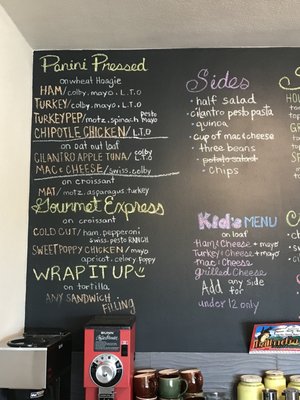 Panini Pressed
on wheat Hoagie
HAM/colby, mayo, L.T.O
TURKEY/colby, mayo, L.T.O
TURKEY PEP/motz, spinach, pesto Mayo
CHIPOTLE CHICKEN/L.T.O
on oat nut loaf
CILANTRO APPLE TUNA/colby L.T.O
MAC & CHEESE/swiss, colby
on croissant
MAT/motz, asparagus, turkey
Gourmet Express
on croissant
COLD CUT/ham, pepperoni
swiss, pesto RANCH
SWEET POPPY CHICKEN/mayo
apricot, celery, poppy
WRAP IT UP
on tortilla
ANY SANDWICH
FILLING
Sides
• half salad
• cilantro pesto pasta
• quinoa
• cup of mac & cheese
• three beans
• potato salad
• chips
Kid's MENU
on loaf
Ham & Cheese + mayo
Turkey & Cheese + mayo
Mac & Cheese
grilled Cheese
Add any side for
under 12 only
BUNN